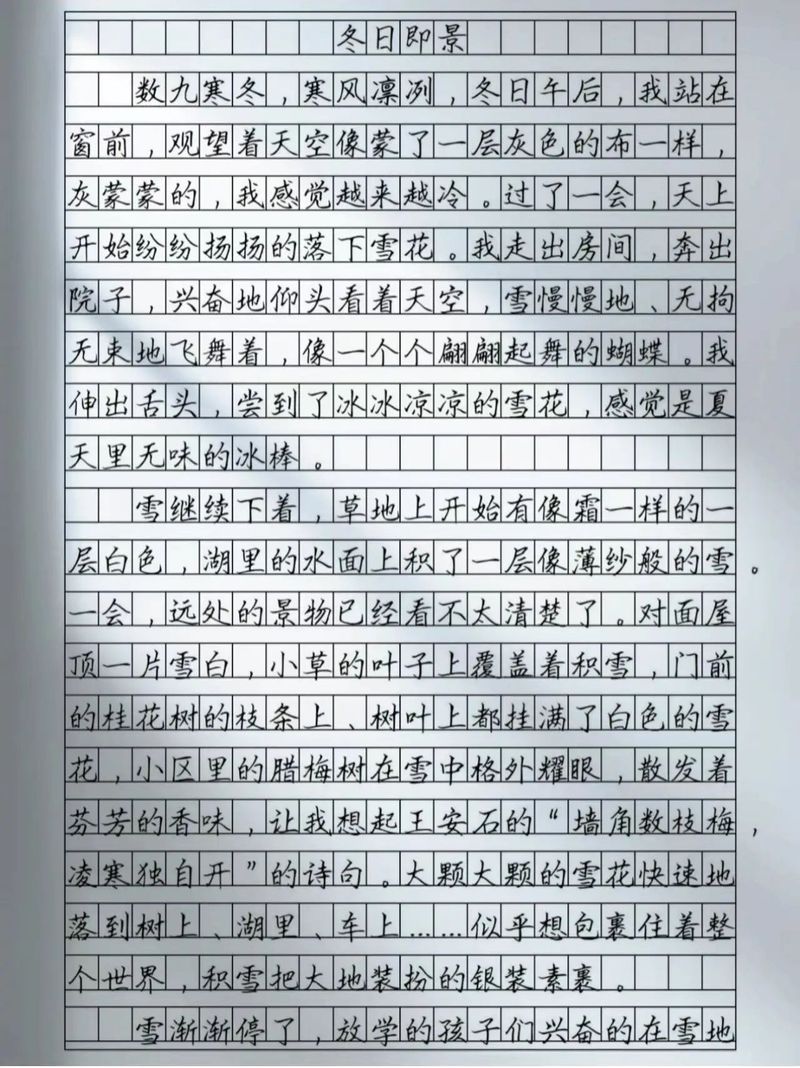 冬日即景
数九寒冬，寒风凛冽，冬日午后，我站在
窗前，观望着天空像蒙了一层灰色的布一样，
灰蒙蒙的，我感觉越来越冷。过了一会，天上
开始纷纷扬扬的落下雪花。我走出房间，奔出
院子，兴奋地仰头看着天空，雪慢慢地、无拘
无束地飞舞着，像一个个翩翩起舞的蝴蝶。我
伸出舌头，尝到了冰冰凉凉的雪花，感觉是夏
天里无味的冰棒。
雪继续下着，草地上开始有像霜一样的一
层白色，湖里的水面上积了一层像薄纱般的雪。
一会，远处的景物已经看不太清楚了。对面屋
顶一片雪白，小草的叶子上覆盖着积雪，门前
的桂花树的枝条上、树叶上都挂满了白色的雪
花，小区里的腊梅树在雪中格外耀眼，散发着
芬芳的香味，让我想起王安石的“墙角数枝梅，
凌寒独自开”的诗句。大颗大颗的雪花快速地
落到树上、湖里、车上……似乎想包裹住着整
个世界，积雪把大地装扮的银装素裹。
雪渐渐停了，放学的孩子们兴奋的在雪地